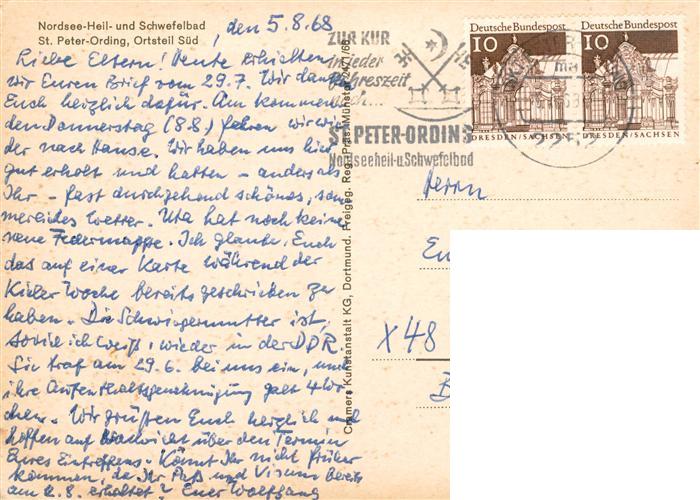 Nordsee-Heil- und Schwefelbad
St. Peter-Ording, Ortsteil Süd
, den 5.8.68
Liebe Eltern! Heute erhielten
wir Euren Brief vom 29.7. Wir danken
Euch herzlich dafür. Am kommen-
den Donnerstag (8.8.) fahren wir wie-
der nach Hause. Wir haben uns hier
gut erholt und hatten - anders als
Ihr - fast durchgehend schönes, som-
merliches Wetter. Uta hat noch keine
neue Federmappe. Ich glaube, Euch
das auf einer Karte während der
Kieler Woche bereits geschrieben zu
haben. Die Schwiegermutter ist,
soviel ich weiß, wieder in der DDR.
Sie traf am 29.6. bei uns ein, und
ihre Aufenthaltsgenehmigung galt 4 Wo-
chen. Wir grüßen Euch herzlich und
hoffen auf Nachricht über den Termin
Eures Eintreffens. Könnt Ihr nicht früher
kommen, da Ihr Paß und Visum bereits
am 2.8. erhaltet? Euer Wolfgang
Cramers Kunstanstalt KG, Dortmund. Freigeg. Reg. Präs. Münster 2471/66
ZUR KUR
in jeder
Jahreszeit
nach
ST. PETER-ORDING
Nordseeheil-u.Schwefelbad
DEUTSCHE BUNDESPOST
10
DRESDEN/SACHSEN
DEUTSCHE BUNDESPOST
10
DRESDEN/SACHSEN
Herrn
X48